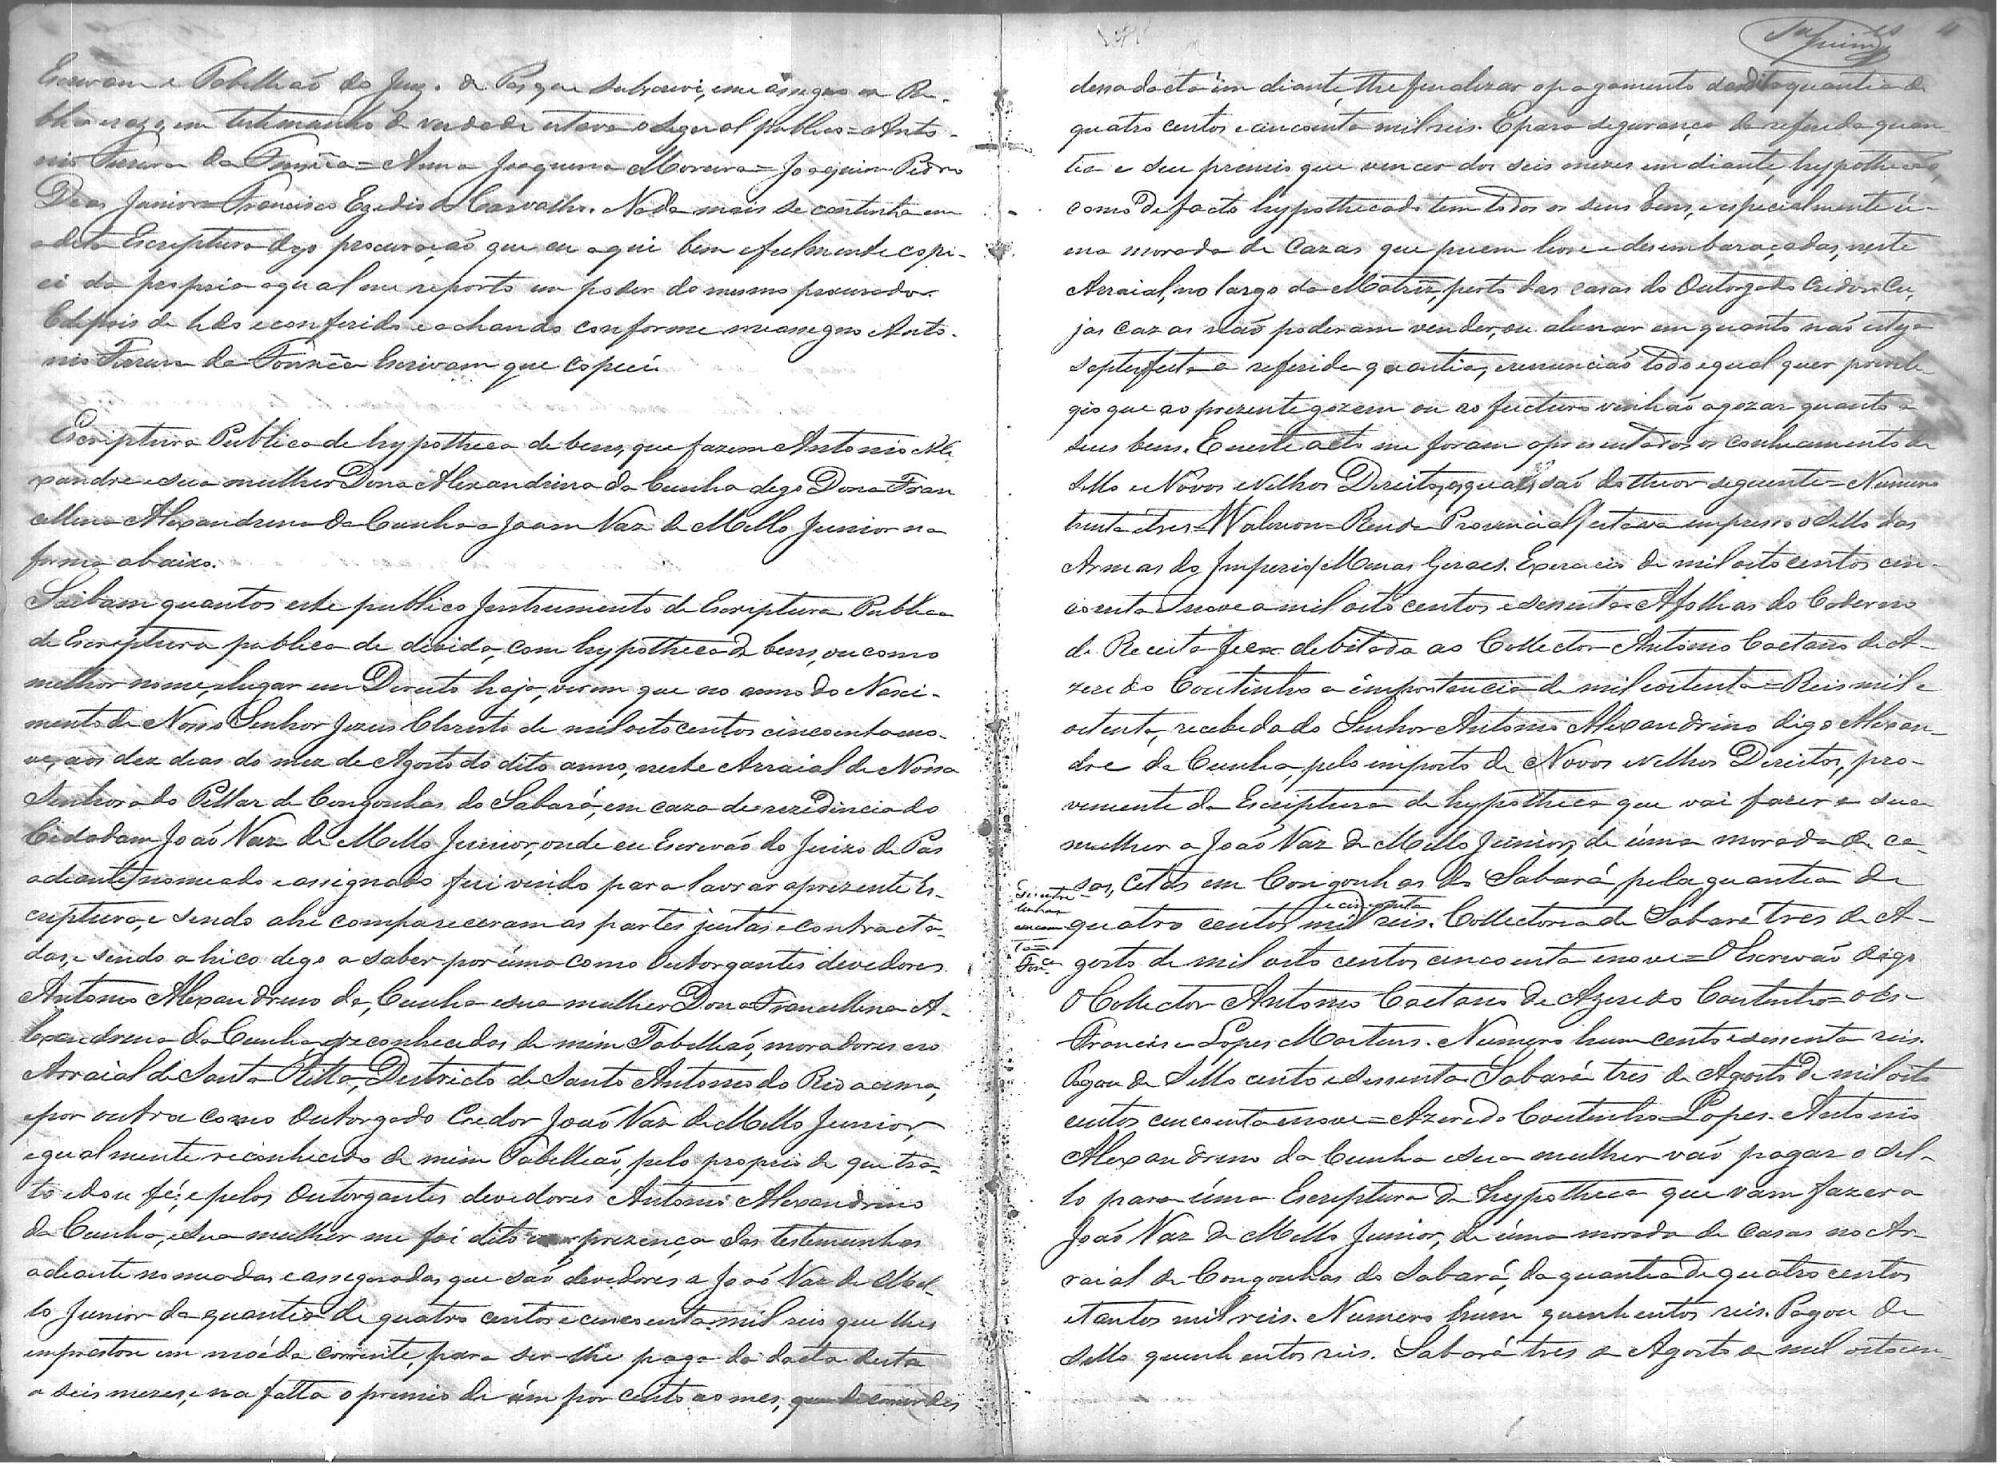 Escrivam e Tabelliaó do Juiz. de Pas que subscrevi, e me assigno em Pu-
blico e razo, em testimunho de verdade estava o signal publico = Anto-
nio Pereira da Fonsẽca = Anna Joaquina Moreira = Joaquim Pedro
Dias Junior = Francisco Egidio de Carvalho. Nada mais se continha em
a dita Escriptura digo procuraçaó que eu aqui bem e fielmente copi-
ei da propria a qual me reporto em poder do mesmo procurador.
E depois de lido e conferido e achando conforme me assigno Anto-
nio Pereira da Fonsẽca Escrivam que copiei
Escriptura Publica de hypotheca de bens, que fazem Antonio Ale
xandre e sua mulher Dona Alexandrina da Cunha digo Dona Fran
cellina Alexandrina da Cunha a Joam Vaz de Mello Junior na
forma abaixo.
Saibam quantos este publico Instrumento de Escriptura Publica
de Escriptura publica de divida, com hypotheca de bens, ou como
melhor nome, e lugar em Direito haja, virem que no anno do Nasci-
mento de Nosso Senhor Jezus Christo de mil oito centos cincoenta e no-
ve, aos dez dias do mez de Agosto do dito anno, neste Arraial de Nossa
Senhora do Pillar de Congonhas do Sabará, em caza de rezidincia do
Cidadam Joaó Vaz de Mello Junior, onde eu Escrivaó do Juizo de Pas
adeante nomeado e assignado fui vindo para lavrar a prezente Es-
criptura, e sendo ahi compareceram as partes juntas e contracta-
das, e sendo a hico digo a saber por úma como Outorgantes devedores
Antonio Alexandrino da, Cunha e sua mulher Dona Francellina A-
lexandrina da Cunha reconhecidos de mim Tabelliaó, moradores no
Arraial de Santa Ritta, Districto de Santo Antonio do Rio acima,
e por outra como Outorgado Credor Joaó Vaz de Mello Junior,
igualmente reconhecido de mim Tabelliaó, pelo proprio de que tra-
to e dou fé; e pelos Outorgantes devedores Antonio Alexandrino
da Cunha, e sua mulher me foi dito em prezença das testemunhas
adeante nomeadas e assignadas que saó devedores a Joaó Vaz de Mel-
lo Junior da quantia de quatro centos e cincoenta mil reis que lhes
emprestou em moéda corrente, para ser-lhe paga da dacta desta
a seis mezes, e na falta o premio de úm por cento ao mes,
dessa dacta em diante, the finalizar o pagamento da dita quantia de
quatro centos e cincoenta mil reis. E para segurança da referida quan
tia e seu premio que vencer dos seis mezes em diante, hypotheca,
como de facto hypothecado tem todos os seus bens, e especialmente ú-
ma morada de cazas que possuem livre e desembaraçadas, neste
Arraial, no largo da Matriz, perto das casas do Outorgado Credor. Cu,
jas cazas naó poderam vender, ou alienar em quanto naó esteja
a referida quantia, e renunciaó todo e qual quer privile
gio que ao prezente gozem ou ao fucturo venhaó a gozar quanto a
seus bens. E neste acto me foram aprezentados os conhecimentos de
Sello e Nóvos e Velhos Direitos, os quais, saó do theor seguente = Numero
trinta e tres = Valeriam = Renda Provincial / estava impresso o Sello das
Armas do Imperio / Minas Geraes. Exercicio de mil oito centos cin-
coenta e nove a mil oito centos e sessenta = A folhas do Caderno
de Receita fica debitada ao Collector Antonio Caetano de A-
zeredo Coutinho a importancia de mil e oitenta = Reis mil e
oitenta, recebida do Senhor Antonio Alexandrino digo Alexan-
dre da Cunha, pelo importo de Novos e Velhos Direitos, pro-
vemente da Escriptura de hypotheca que vai fazer e sua
mulher a Joaó Vaz de Mello Junior, de úma morada de ca-
sas, citas em Congonhas do Sabará pela quantia de
e cincoenta
quatro centos mil reis. Collectoria de Sabará tres de A-
gosto de mil oito centos cincoenta e nove = O Escrivaó digo
O Collector Antonio Caetano de Azeredo Coutinho = O Es-
Francisco Lopes Martins. Numero hum cento e sessenta reis.
Pagou de Sello cento e sessenta Sabará tres de Agosto de mil oito
centos cincoenta e nove = Azeredo Coutinho = Lopes. Antonio
Alexandrino da Cunha e sua mulher vaó pagar o Sel-
lo para úma Escriptura de hypotheca que vam fazer a
Joaó Vaz de Mello Junior, de úma morada de casas no Ar-
raial de Congonhas do Sabará, da quantia de quatro centos
e tantos mil reis. Numero hum quinhentos reis. Pagou de
Sello quinhentos reis. Sabará tres de Agosto de mil oito cen-